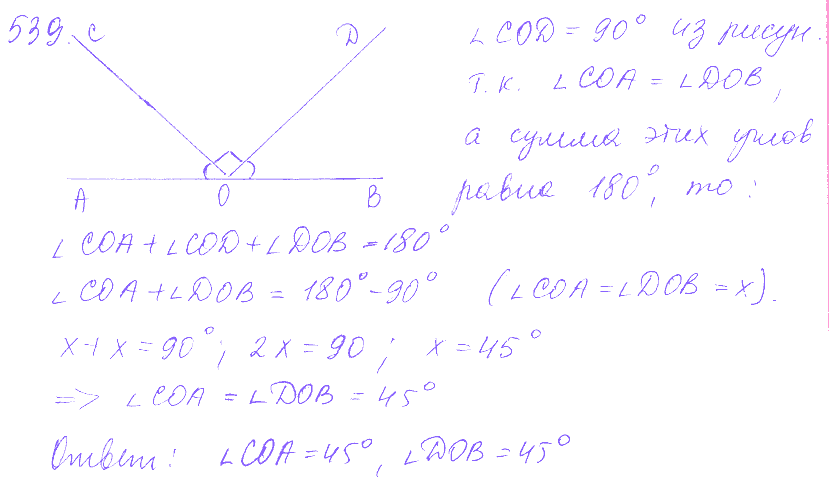 539.
C D
A O B
∠COD = 90° из рисун.
т.к. ∠COA = ∠DOB,
а сумма этих углов
равна 180°, то:
∠COA + ∠COD + ∠DOB = 180°
∠COA + ∠DOB = 180° - 90° (∠COA = ∠DOB = x).
x + x = 90°; 2x = 90; x = 45°
=> ∠COA = ∠DOB = 45°
Ответ: ∠COA = 45°, ∠DOB = 45°